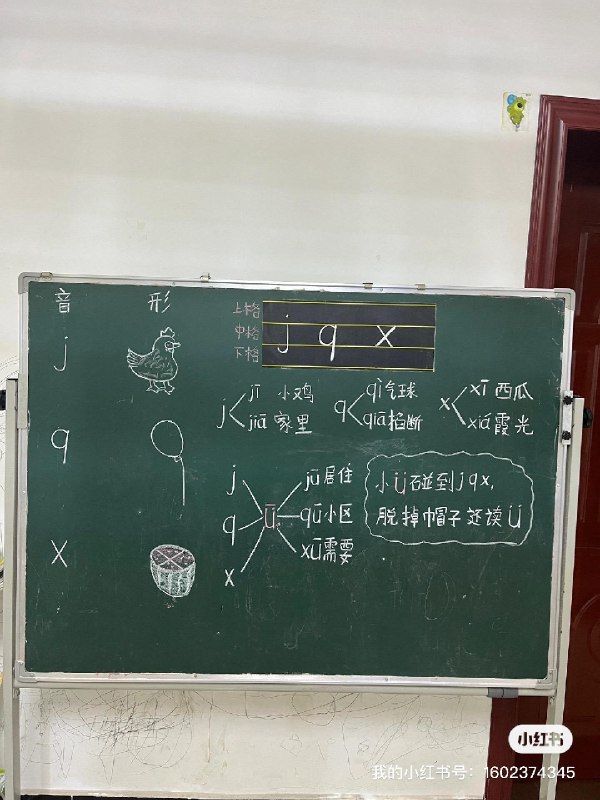 音 形
上格
中格
下格
j q x
j
q
x
j jī 小鸡
jiā 家里
q qì 气球
qiā 掐断
x xī 西瓜
xiá 霞光
j
q
x
ü
jū 居住
qū 小区
xū 需要
小ü碰到jqx,
脱掉帽子还读ü
小红书
我的小红书号：1602374345